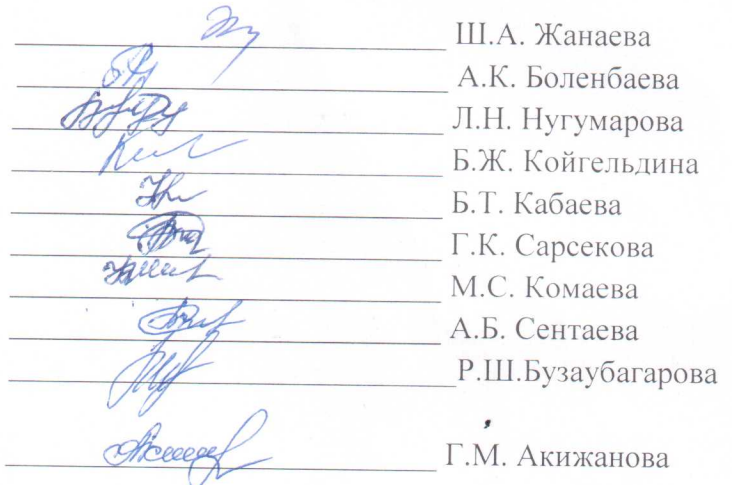 Ш.А. Жанаева
А.К. Боленбаева
Л.Н. Нугумарова
Б.Ж. Койгельдина
Б.Т. Кабаева
Г.К. Сарсекова
М.С. Комаева
А.Б. Сентаева
Р.Ш.Бузаубагарова
Г.М. Акижанова